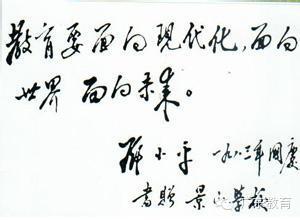 教育要面向现代化，面向
世界 面向未来。
邓小平 一九八三年国庆
书赠 景山学校